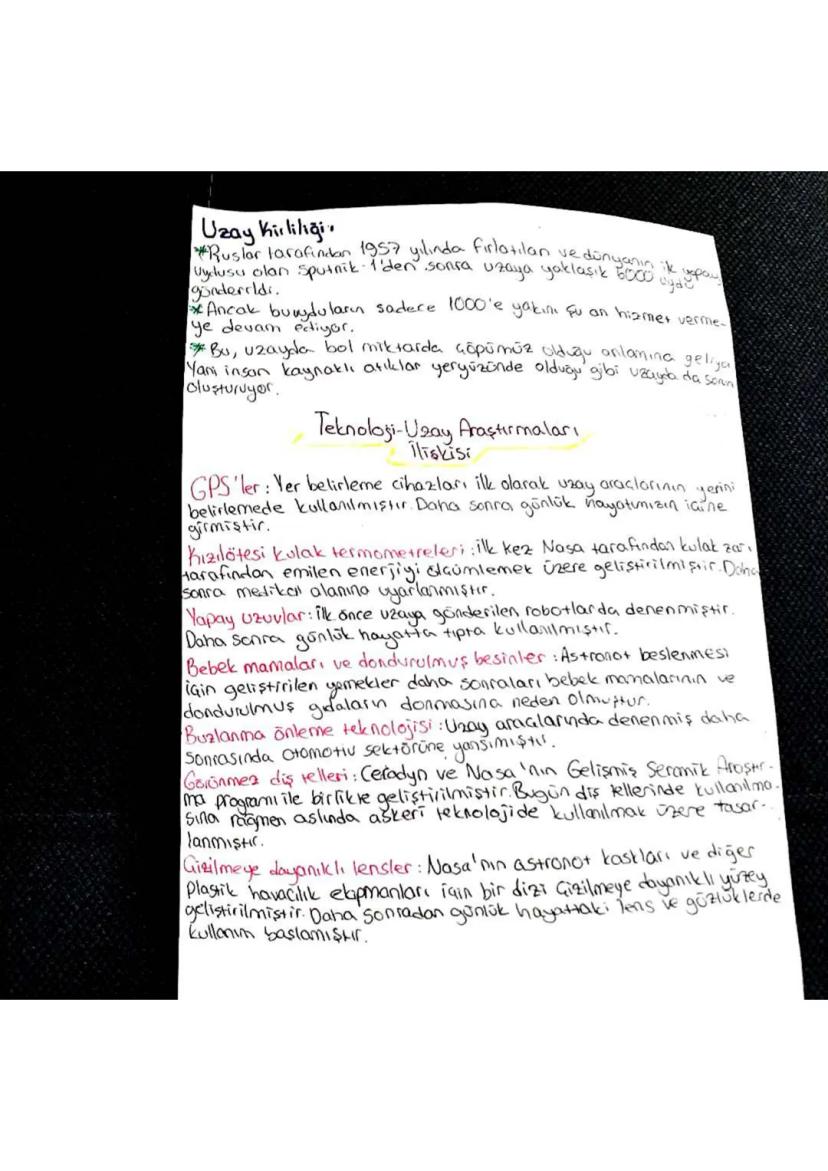 Uzay Kirliliği.
*Ruslar tarafından 1957 yılında fırlatılan ve dünyanın ilk yapay
uydusu olan sputnik-1'den sonra uzaya yaklaşık 6000 uydu
gönderildi.
*Ancak bu uyduların sadece 1000'e yakını şu an hizmet verme-
ye devam ediyor.
*Bu, uzayda bol miktarda çöpümüz olduğu anlamına geliyor
Yani insan kaynaklı atıklar yeryüzünde olduğu gibi uzayda da sorun
oluşturuyor.
Teknoloji-Uzay Araştırmaları
İlişkisi
GPS'ler: Yer belirleme cihazları ilk olarak uzay araçlarının yerini
belirlemede kullanılmıştır. Daha sonra günlük hayatımızın içine
girmiştir.
Kızılötesi kulak termometreleri: ilk kez Nasa tarafından kulak zarı
tarafından emilen enerjiyi ölçümlemek üzere geliştirilmiştir. Daha
sonra medikal alanına uyarlanmıştır.
Yapay uzuvlar: ilk önce uzaya gönderilen robotlarda denenmiştir.
Daha sonra günlük hayatta tıpta kullanılmıştır.
Bebek mamaları ve dondurulmuş besinler: Astronot beslenmesi
için geliştirilen yemekler daha sonraları bebek mamalarının ve
dondurulmuş gıdaların donmasına neden olmuştur.
Buzlanma önleme teknolojisi: Uzay araçlarında denenmiş daha
sonrasında otomotiv sektörüne yansımıştır.
Görünmez diş telleri: Ceradyn ve Nasa'nın Gelişmiş Seramik Araştır-
ma programı ile birlikte geliştirilmiştir. Bugün diş tellerinde kullanılma-
sına rağmen aslında askeri teknolojide kullanılmak üzere tasar-
lanmıştır.
Çizilmeye dayanıklı lensler: Nasa'nın astronot kaskları ve diğer
plastik havacılık ekipmanları için bir dizi çizilmeye dayanıklı yüzey
geliştirilmiştir. Daha sonradan günlük hayattaki lens ve gözlüklerde
kullanım başlamıştır.